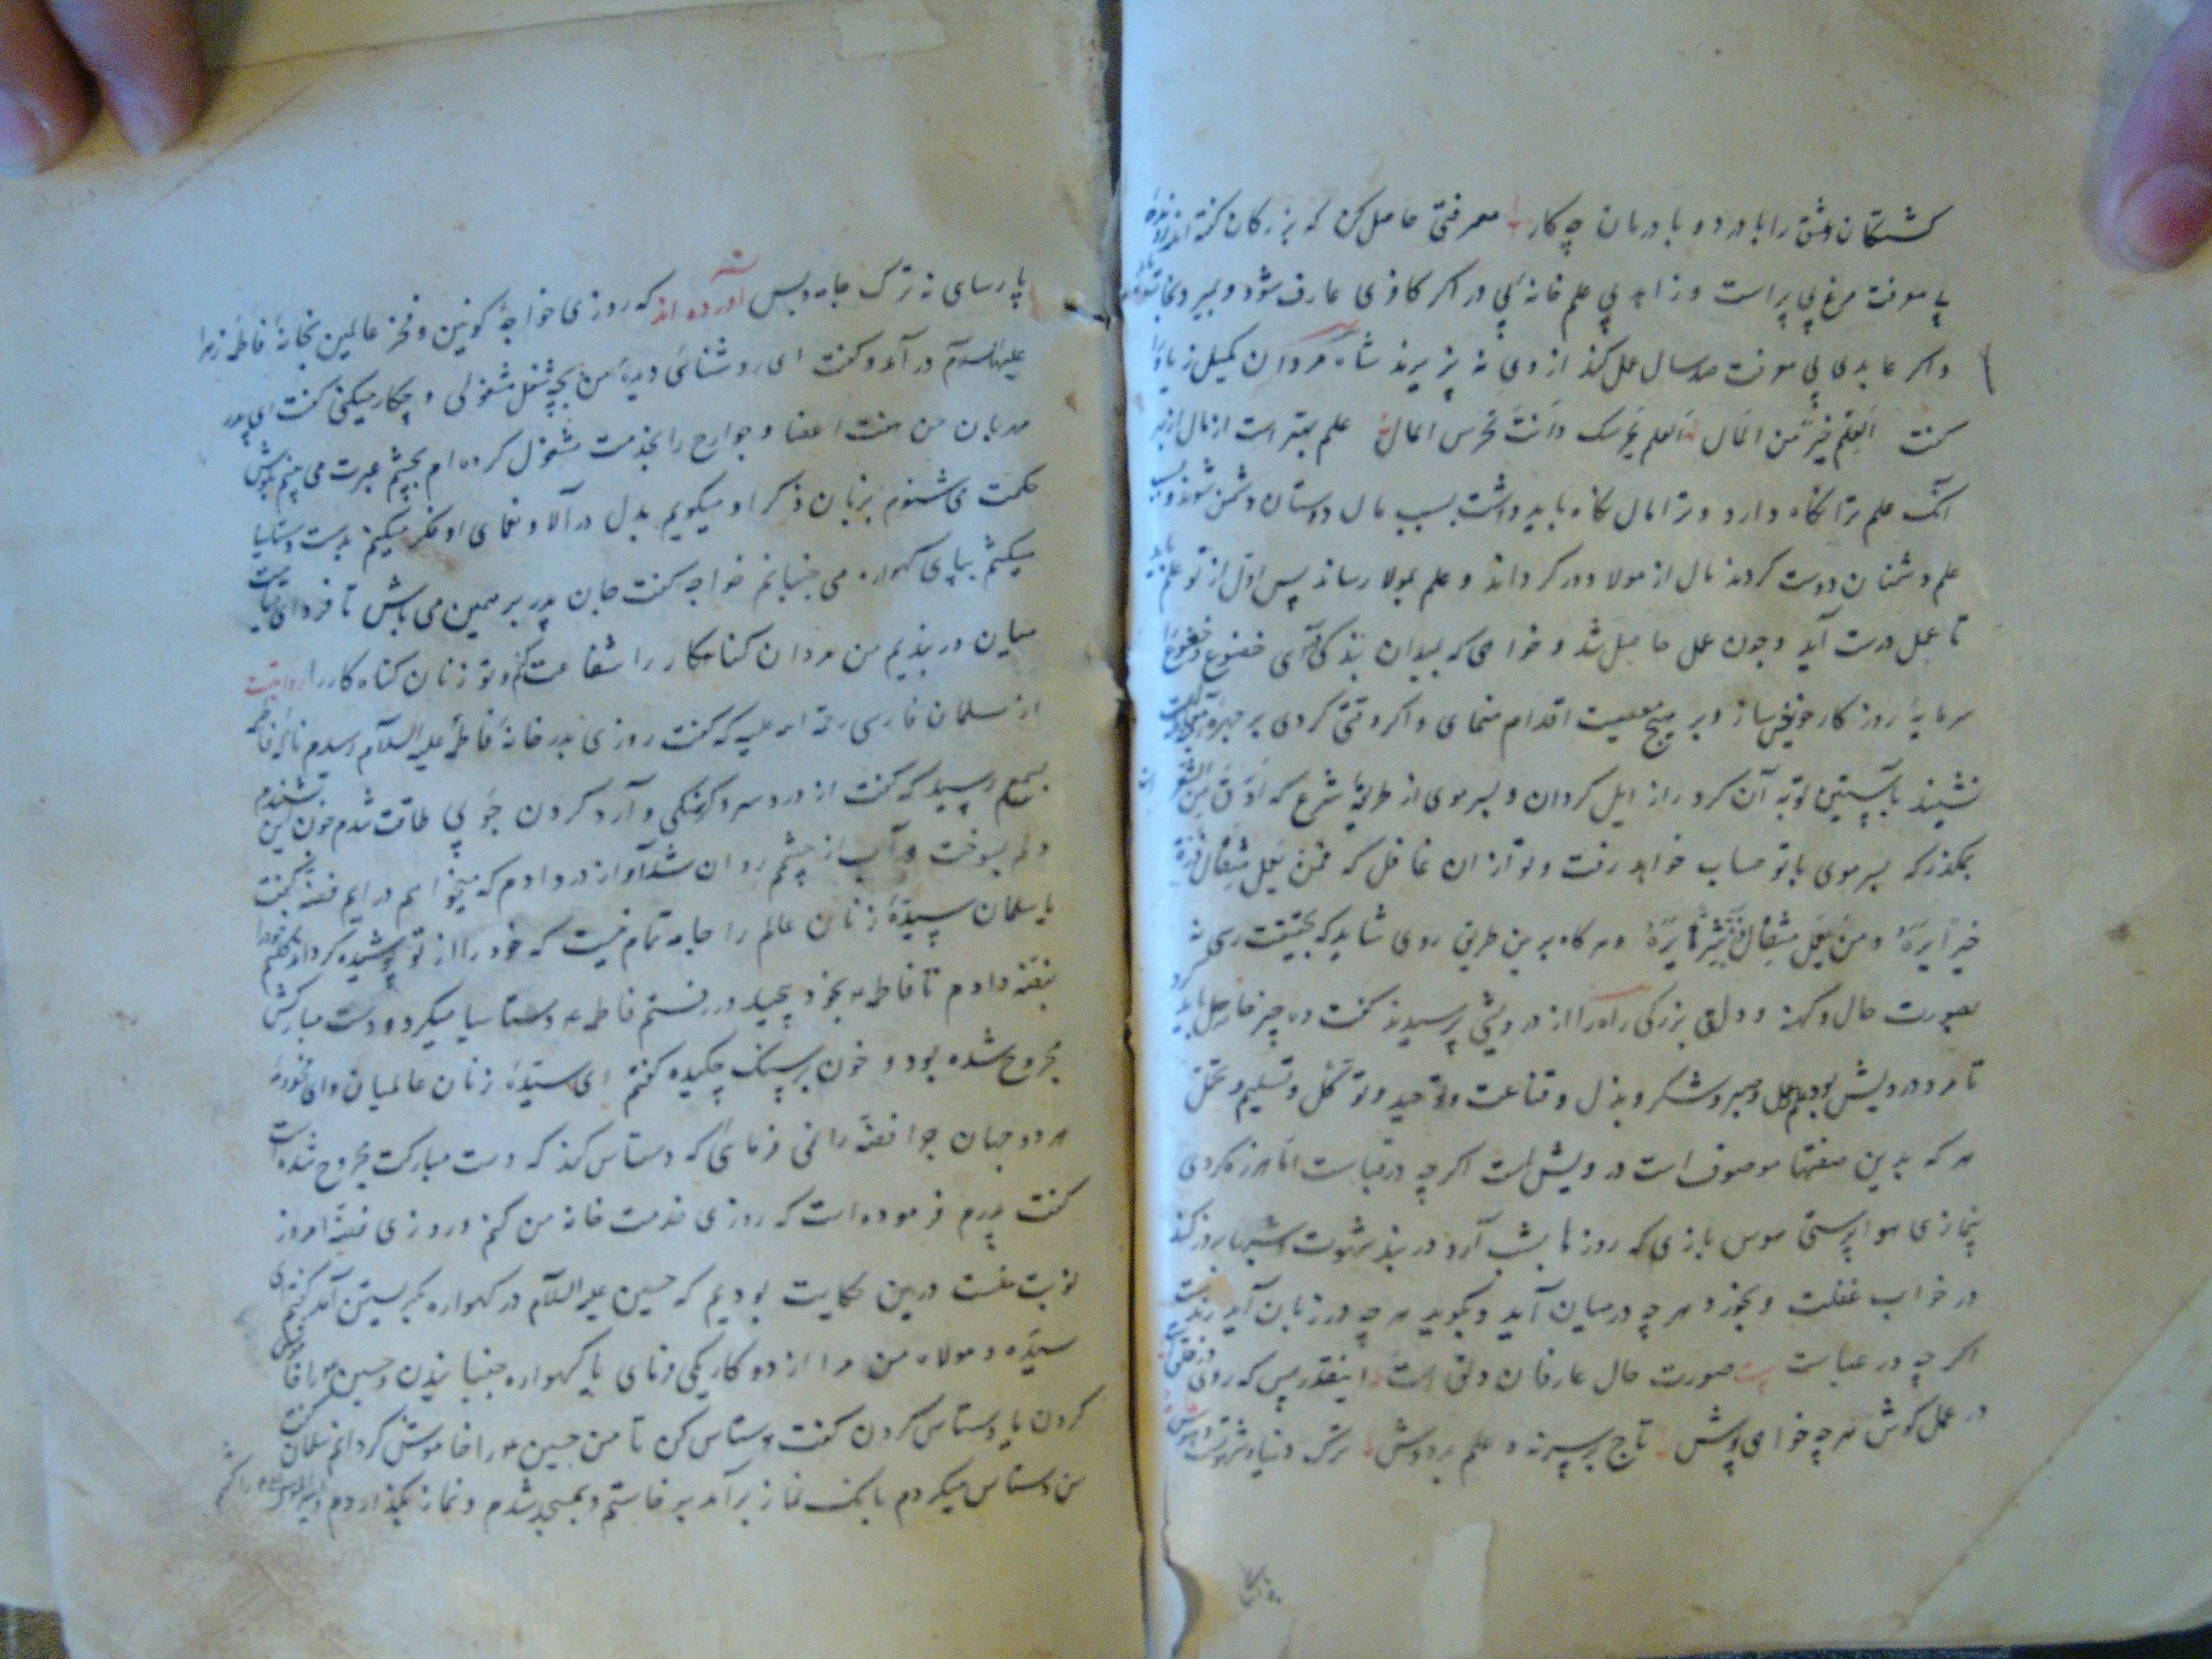 کشتگان عشق را با درد و با درمان چه کار معرفتی حاصل کن که بزرکان کفته اند
بی معرفت مرغ بی پر است و زاهد بی علم خانه بی در اکر کافری عارف شود و بمیرد نجات
و اکر عابدی بی معرفت صد سال عمل کند از وی نه پزیرند شاه مردان کمیل زیاد را
کفت اَلعِلمُ خَیرٌ مِنَ المَال اَلعلم یَحرسک وَاَنتَ تَحرس المال علم بهتر است از مال از بهر
آنک علم ترا نکاه دارد و ترا مال نکاه باید داشت بسبب مال دوستان دشمن شوند و بسبب
علم دشمنان دوست کردند مال از مولا دور کرداند و علم بمولا رساند پس اول از تو علم باید
تا عمل درست آید و چون عمل حاصل شد و خواهی که بمیدان بندکی آی خضوع و خشوع را
سرمایهٔ روزکار خویش ساز و بر هیچ معصیت اقدام منمای و اکر وقتی کردی بر چهره
نشیند بآستین توبه آن کرد را زایل کردان و بسر موی از طریقهٔ شرع که اَدَقّ مِنَ الشعر
بمکذر که بسر موی با تو حساب خواهد رفت و تو از ان غافل که فَمَن یَعمَل مِثقَالَ ذَرَّة
خَیراً یَرَهُ وَمَن یَعمَل مِثقَالَ ذَرَّةٍ شَرّاً یَرَهُ و هر کاه برین طریق روی شاید که بحقیقت رسی نه
بصورت حال و کهنه و دلق بزرکی را از درویشی پرسیدند کفت ده چیز حاصل باید
تا مرد درویش بود علم و عمل و صبر و شکر و بذل و قناعت و توحید و توکل و تسلیم و تحمل
هر که بدین صفتها موصوف است درویش است اکر چه در قباست اما هرزه کردی
بی نمازی هواپرستی هوس بازی که روزها بشب آرد در بند شهوت و شبها بروز کند
در خواب غفلت و بخورد هر چه در میان آید و بکوید هر چه در زبان آید رندست
اکر چه در عباست صورت حال عارفان دلق است اینقدر بس که روی در خلق
در عمل کوش هر چه خواهی پوش تاج بر سر نه و علم بر دوش ترک دنیا و شهوتست و هوس
پارسای نه ترک جامه و بس آورده اند که روزی خواجهٔ کونین و فخر عالمین بخانهٔ فاطمه زهرا
علیها السلام در آمد و کفت ای روشنائی دیدهٔ من بچه شغل مشغولی و چکار میکنی کفت ای پدر
مهربان من هفت اعضا و جوارح را بخدمت مشغول کرده ام بچشم عبرت می بینم بکوش
حکمت می شنوم بزبان ذکر او میکویم بدل در آلا و نعمای او فکر میکنم بدست دستاسیا
میکشم بپای کهواره می جنبانم خواجه کفت جان پدر برهمین می باش تا فردای قیامت
میان دربندیم من مردان کناهکار را شفاعت کنم و تو زنان کناه کار را روایتست
از سلمان فارسی رحمة الله علیه که کفت روزی بدر خانهٔ فاطمه علیه السلام رسیدم نالهٔ فاطمه
بسمع رسید که کفت از درد سر و کرسنکی و آرد کردن جو بی طاقت شدم چون این بشنیدم
دلم بسوخت و آب از چشم روان شد آواز در دادم که میخواهم در ایم فضه کفت
یا سلمان سیدهٔ زنان عالم را جامه تمام نیست که خود را از تو پوشیده کرداند کلیم خود را
بفضه دادم تا فاطمه بخود پیچید در رفتم فاطمه دستاسیا میکرد و دست مبارکش
مجروح شده بود و خون بر سنک چکیده کفتم ای سیدهٔ زنان عالمیان و ای مخدومهٔ
هر دو جهان چرا فضه را نمی فرمائی که دستاس کند که دست مبارکت مجروح شده است
کفت پدرم فرموده است که روزی خدمت خانه من کنم و روزی فضه امروز
نوبت منست درین حکایت بودیم که حسین علیه السلام در کهواره بکریستن آمد کفتم ای
سیده و مولاه من مرا از دو کار یکی فرمای یا کهواره جنبانیدن و حسین را خاموش
کردن یا دستاس کردن کفت دستاس کن تا من حسین را خاموش کردانم سلمان کفت
من دستاس میکردم بانک نماز برآمد برخاستم و بمسجد شدم و نماز بکذاردم